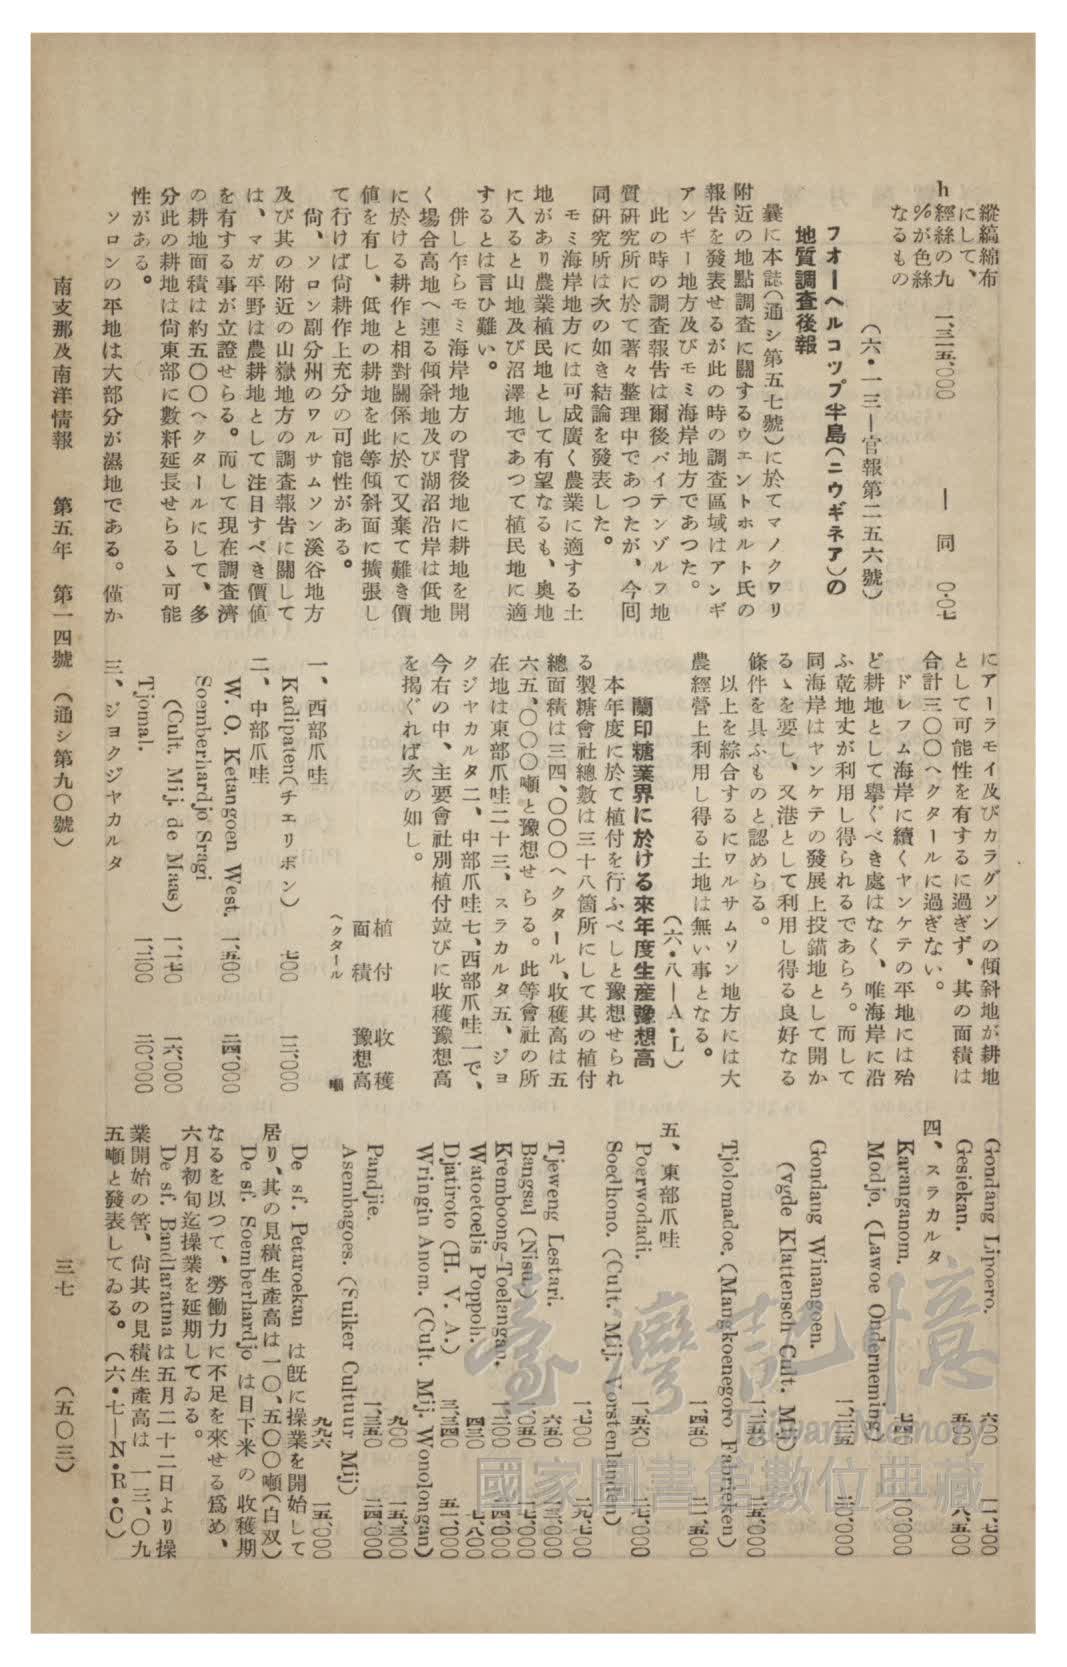 縱縞綿布
にして、
h經絲の九 一、三二五、〇〇〇 ― 同 〇・〇七
%が色絲
なるもの
(六・一三―官報第二五六號)
フオーヘルコツプ半島(ニウギネア)の
地質調査後報
曩に本誌(通シ第五七號)に於てマノクワリ
附近の地點調査に關するウエントホルト氏の
報告を發表せるが此の時の調査區域はアンギ
アンギー地方及びモミ海岸地方であつた。
此の時の調査報告は爾後バイテンゾルフ地
質研究所に於て著々整理中であつたが、今囘
同研究所は次の如き結論を發表した。
モミ海岸地方には可成廣く農業に適する土
地があり農業植民地として有望なるも、奧地
に入ると山地及び沼澤地であつて植民地に適
するとは言ひ難い。
併し乍らモミ海岸地方の背後地に耕地を開
く場合高地へ連る傾斜地及び湖沼沿岸は低地
に於ける耕作と相對關係に於て又棄て難き價
値を有し、低地の耕地を此等傾斜面に擴張し
て行けば尙耕作上充分の可能性がある。
尙、ソロン副分州のワルサムソン溪谷地方
及び其の附近の山嶽地方の調査報告に關して
は、マガ平野は農耕地として注目すべき價値
を有する事が立證せらる。而して現在調査濟
の耕地面積は約五〇〇ヘクタールにして、多
分此の耕地は尙東部に數粁延長せらるゝ可能
性がある。
ソロンの平地は大部分が濕地である。僅か
にアーラモイ及びカラダソンの傾斜地が耕地
として可能性を有するに過ぎず、其の面積は
合計三〇〇ヘクタールに過ぎない。
ドレフム海岸に續くヤンケテの平地には殆
ど耕地として擧ぐべき處はなく、唯海岸に沿
ふ乾地丈が利用し得られるであらう。而して
同海岸はヤンケテの發展上投錨地として開か
るゝを要し、又港として利用し得る良好なる
條件を具ふものと認めらる。
以上を綜合するにワルサムソン地方には大
農經營上利用し得る土地は無い事となる。
(六・八―A・L)
蘭印糖業界に於ける來年度生産豫想高
本年度に於て植付を行ふべしと豫想せられ
る製糖會社總數は三十八箇所にして其の植付
總面積は三四、〇〇〇ヘクタール、收穫高は五
六五、〇〇〇噸と豫想せらる。此等會社の所
在地は東部爪哇二十三、スラカルタ五、ジョ
クジヤカルタ二、中部爪哇七、西部爪哇一で、
今右の中、主要會社別植付並びに收穫豫想高
を揭ぐれば次の如し。
植付面積 收穫豫想高
(ヘクタール 噸
一、西部爪哇
Kadipaten(チェリボン) 七〇〇 一二、〇〇〇
二、中部爪哇
W. O. Ketangoen West. 一、五〇〇 二四、〇〇〇
Soemberhardjo Sragi
(Cult. Mij. de Maas) 一、一七〇 一六、〇〇〇
Tjomal. 一、一〇〇 二〇、〇〇〇
三、ジヨクジヤカルタ
Gondang Lipoero. 六〇〇 一一、七〇〇
Gesiekan. 五〇〇 八、五〇〇
四、スラカルタ
Karanganom. 七四〇 一〇、〇〇〇
Modjo. (Lawoe Onderneming) 一、二三五 二〇、〇〇〇
Gondang Winangoen.
(vgde Klattensch Cult. Mij) 二五、〇〇〇
Tjolomadoe. (Mangkoenegoro Fabrieken) 一、四五〇 二一、五〇〇
五、東部爪哇
Poerwodadi. 一、五六〇 二七、〇〇〇
Soedhono. (Cult. Mij. Vorstenlanden) 一、七〇〇 二九、七〇〇
Tjeweng Lestari. 六五〇 一三、〇〇〇
Bangsal (Nisu.) 一、〇五〇
Kremboong-Toelangan. 一、二〇〇 二四、〇〇〇
Watoetoelis Poppoh. 四三〇 七、八〇〇
Djatiroto (H. V. A.) 三、三四〇 五一、〇〇〇
Wringin Anom. (Cult. Mij. Wonolongan) 九〇〇 一五、三〇〇
Pandjie. 一、三五〇 二四、〇〇〇
Asembagoes. (Suiker Cultuur Mij) 九九六 一五、〇〇〇
De sf. Petaroekan は旣に操業を開始して
居り、其の見積生産高は一〇、五〇〇噸(白双)
De sf. Soemberhardjo は目下米の收穫期
なるを以つて、勞働力に不足を來せる爲め、
六月初旬迄操業を延期してゐる。
De sf. Bandjaratma は五月二十二日より操
業開始の筈、尙其の見積生産高は 一三、〇九
五噸と發表してゐる。(六・七―N・R・C)
南支那及南洋情報 第五年 第一四號 (通シ第九〇號) 三七 (五〇三)
臺灣記憶
Taiwan Memory
國家圖書館數位典藏